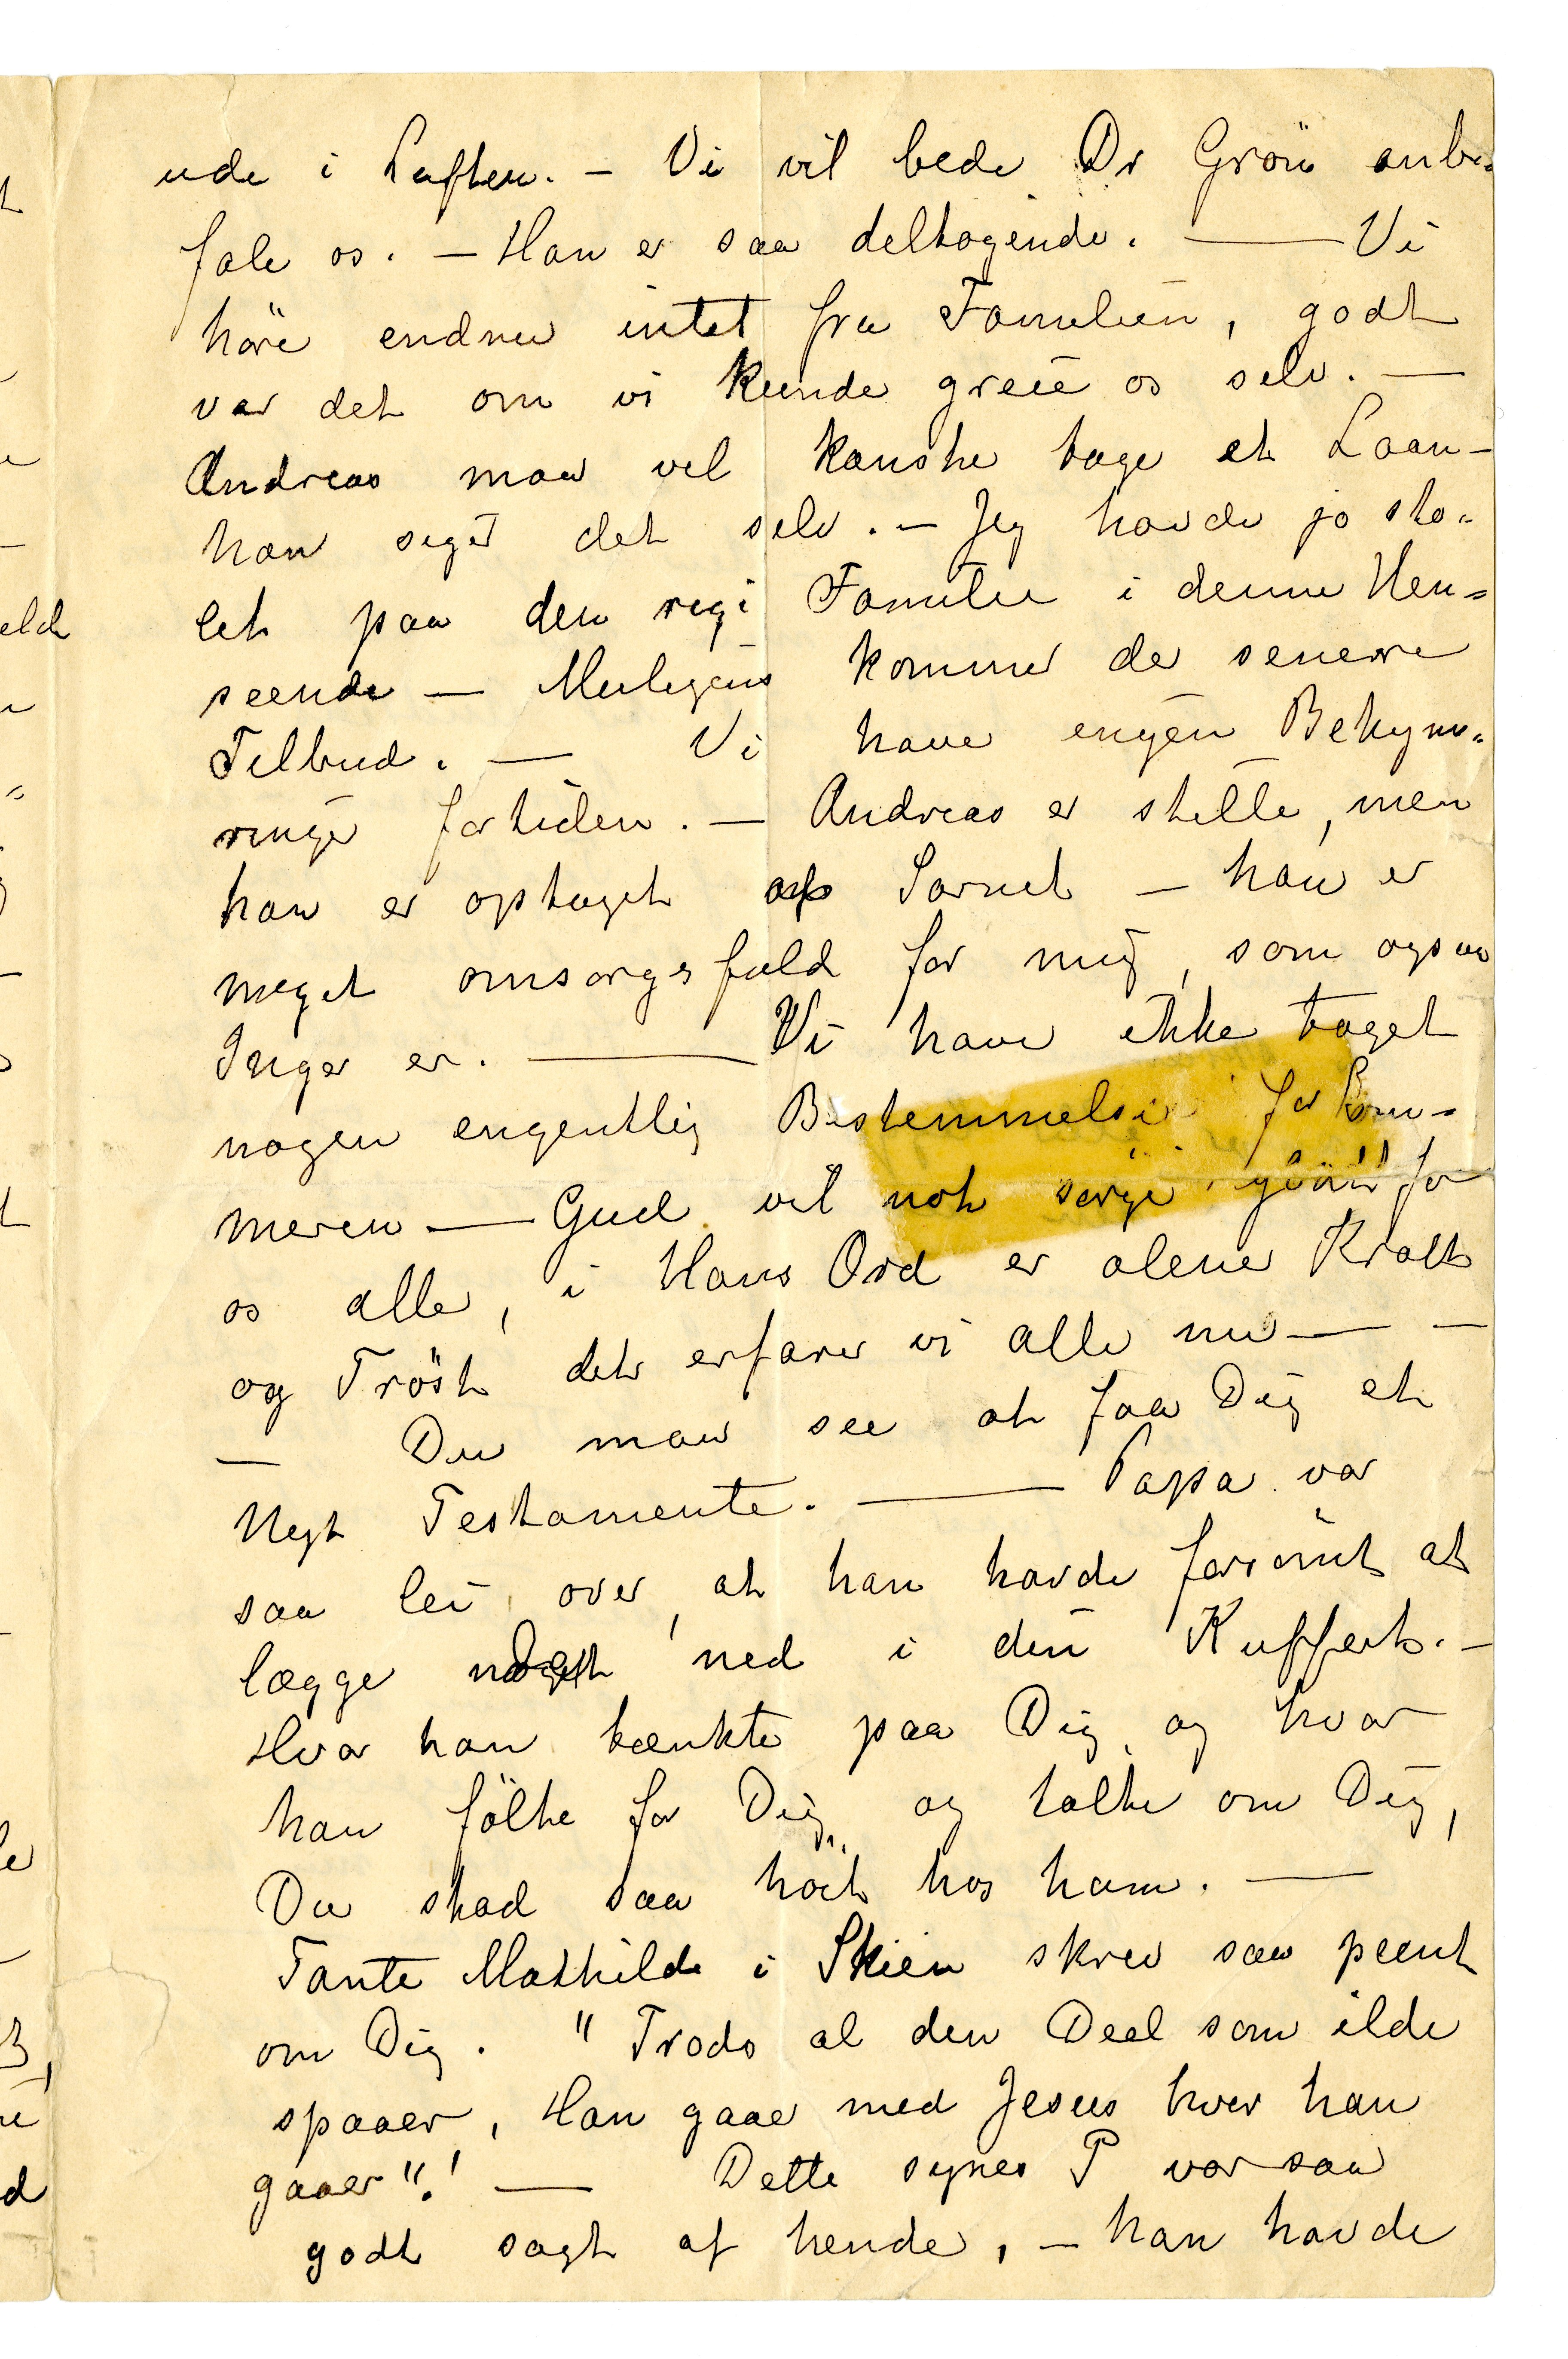 ude i Luften. – Vi vil bede Dr Grön anbe=
fale os. – Han er saa deltagende. — Vi
höre endnu intet fra Familien, godt
var det om vi kunde greie os selv. —
Andreas maa vel kanske tage et Laan –
han siger det selv. – Jeg havde jo sto=
let paa den rige Familie i denne Hen=
seende — Muligens kommer de senere
Tilbud. — Vi have ingen Bekym=
ringer fortiden. – Andreas er stille, men
han er optaget af Savnet – han er
meget omsorgsfuld for mig, som ogsaa
Inger er. — Vi have ikke taget
nogen engentlig Bestemmelse for Som=
meren — Gud vil nok sörge godt for
os alle, i Hans Ord er alene Kraft
og Tröst det erfarer vi alle nu — –
— Du maa see at faa Dig et
Nyt Testamente. — Papa var
saa lei over, at han havde forsömt at
lægge noget ned i din Kuffert. –
Hvor han tænkte paa Dig, og hvor
han fölte for Dig og talte om Dig,
Du stod saa höit hos ham. —
Tante Mathilde i Skien skrev saa peent
om Dig. "Trods al den Deel som ilde
spaaer, Han gaae med Jesus hver han
gaaer"! — Dette synes P var saa
godt sagt af hende, – han havde